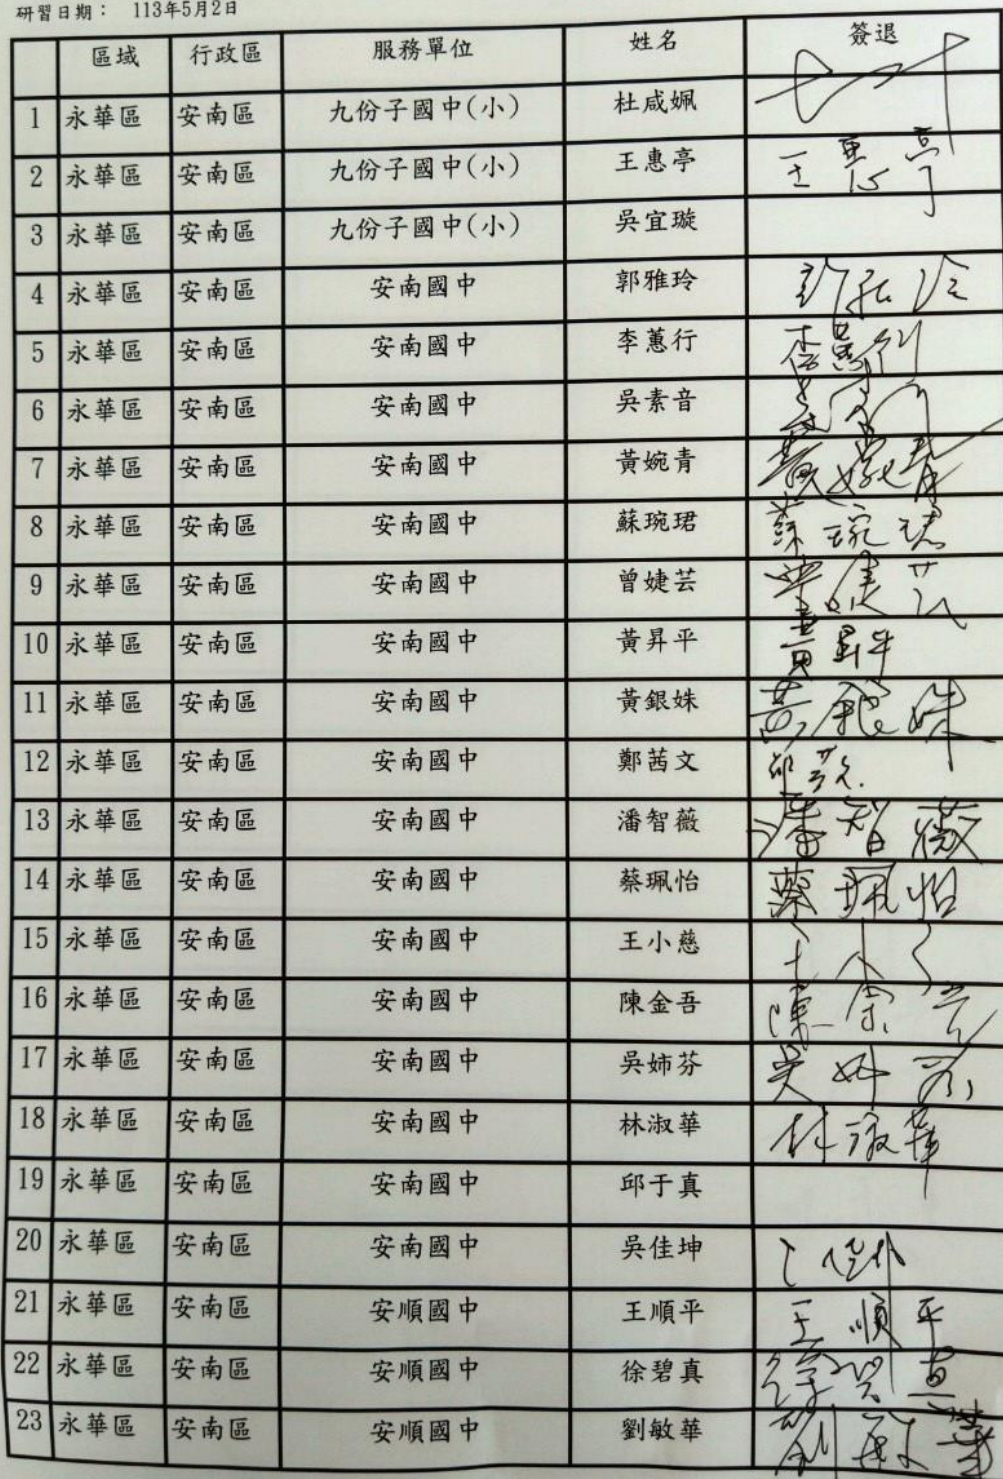 研習日期： 113年5月2日
區域 行政區 服務單位 姓名 簽退
1 永華區 安南區 九份子國中(小) 杜咸姵
2 永華區 安南區 九份子國中(小) 王惠亭 王惠亭
3 永華區 安南區 九份子國中(小) 吳宜璇
4 永華區 安南區 安南國中 郭雅玲
5 永華區 安南區 安南國中 李蕙行 李蕙行
6 永華區 安南區 安南國中 吳素音
7 永華區 安南區 安南國中 黃婉青 黃婉青
8 永華區 安南區 安南國中 蘇琬珺 蘇琬珺
9 永華區 安南區 安南國中 曾婕芸
10 永華區 安南區 安南國中 黃昇平 黃昇平
11 永華區 安南區 安南國中 黃銀姝 黃銀姝
12 永華區 安南區 安南國中 鄭茜文
13 永華區 安南區 安南國中 潘智薇 潘智薇
14 永華區 安南區 安南國中 蔡珮怡 蔡珮怡
15 永華區 安南區 安南國中 王小慈
16 永華區 安南區 安南國中 陳金吾 陳金吾
17 永華區 安南區 安南國中 吳姉芬 吳姉芬
18 永華區 安南區 安南國中 林淑華 林淑華
19 永華區 安南區 安南國中 邱于真
20 永華區 安南區 安南國中 吳佳坤
21 永華區 安南區 安順國中 王順平 王順平
22 永華區 安南區 安順國中 徐碧真 徐碧真
23 永華區 安南區 安順國中 劉敏華 劉敏華